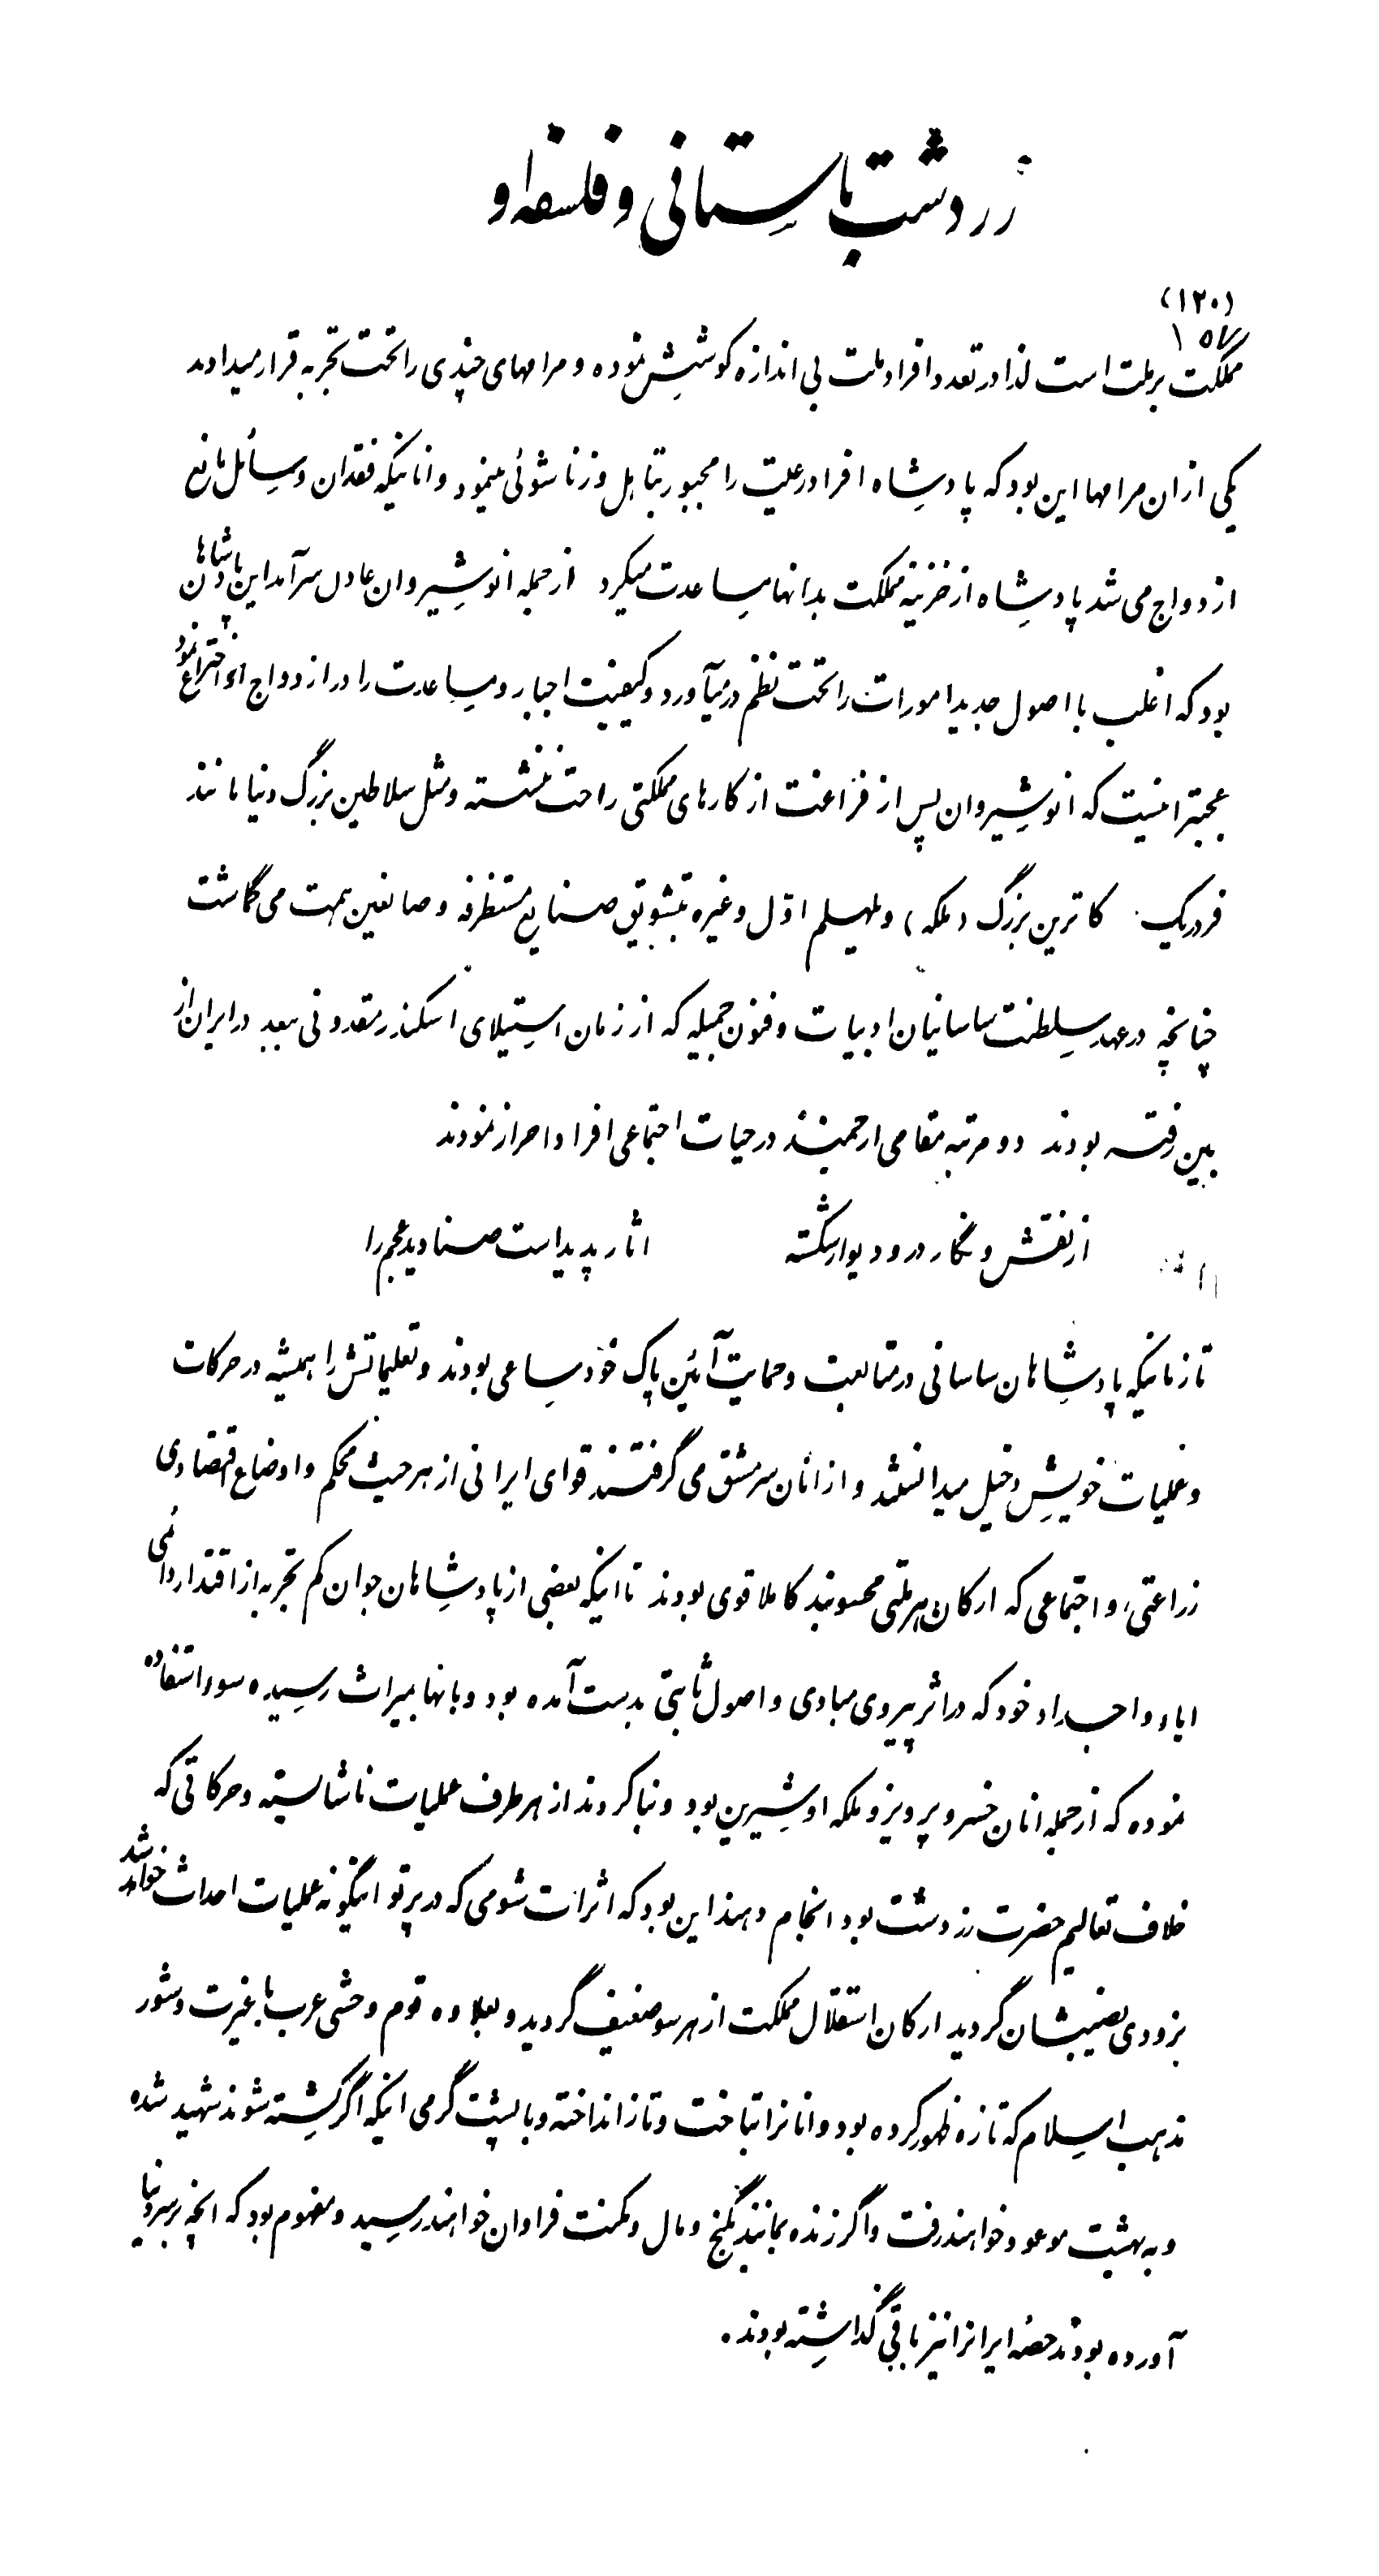 زردشت باستانی و فلسفه او
(۱۲۰)
۱۵۷
مملکت بر ملت است لذا در تعدد افراد ملت بی اندازه کوشش نموده و مرامهای چندی را تحت تجربه قرار میدادند
یکی از ان مرامها این بود که پادشاه افراد رعیت را مجبور بتاهل و زناشوئی مینمود و انانیکه فقدان وسائل مانع
ازدواج می شد پادشاه از خزینه مملکت بدانها مساعدت میکرد از جمله انوشیروان عادل سرآمد این پادشاهان
بود که اغلب با اصول جدید امورات را تحت نظم در میآورد و کیفیت اجبار و مساعدت را در ازدواج او اختراع نمود
عجبتر اینست که انوشیروان پس از فراغت از کارهای مملکتی راحت ننشسته و مثل سلاطین بزرگ دنیا مانند
فردریک کاترین بزرگ (ملکه) ویلهیلم اوّل و غیره بتشویق صنایع مستظرفه و صانعین همت می گماشت
چنانچه در عهد سلطنت ساسانیان ادبیات و فنون جمیله که از زمان استیلای اسکندر مقدونی ببعد در ایران از
بین رفته بودند دو مرتبه مقامی ارجمند در حیات اجتماعی افراد احراز نمودند
از نقش و نگار در و دیوار شکسته اثار پدید است صنادید عجم را
تا زمانیکه پادشاهان ساسانی در متابعت و حمایت آئین پاک خود ساعی بودند و تعلیماتش را همیشه در حرکات
و عملیات خویش دخیل میدانستند و از انان سرمشق می گرفتند قوای ایرانی از هر حیث محکم و اوضاع اقتصادی
زراعتی، و اجتماعی که ارکان هر ملتی محسوبند کاملا قوی بودند تا اینکه بعضی از پادشاهان جوان کم تجربه از اقتدار دائمی
اباء و اجداد خود که در اثر پیروی مبادی و اصول ثابتی بدست آمده بود و بانها بمیراث رسیده سوء استفاده
نموده که از جمله انان خسرو پرویز و ملکه او شیرین بود و بنا کردند از هر طرف عملیات ناشایسته و حرکاتی که
خلاف تعالیم حضرت زردشت بود انجام دهند این بود که اثرات شومی که در پرتو اینگونه عملیات احداث خواهد شد
بزودی نصیبشان گردید ارکان استقلال مملکت از هر سو ضعیف گردید و بعلاوه قوم وحشی عرب با غیرت و شور
مذهب اسلام که تازه ظهور کرده بود و انانرا بتاخت و تاز انداخته و با پشت گرمی اینکه اگر کشته شوند شهید شده
و به بهشت موعود خواهند رفت و اگر زنده بمانند بگنج و مال و مکنت فراوان خواهند رسید و مفهوم بود که انچه بر سر دنیا
آورده بودند حصه ایرانرا نیز باقی گذاشته بودند.